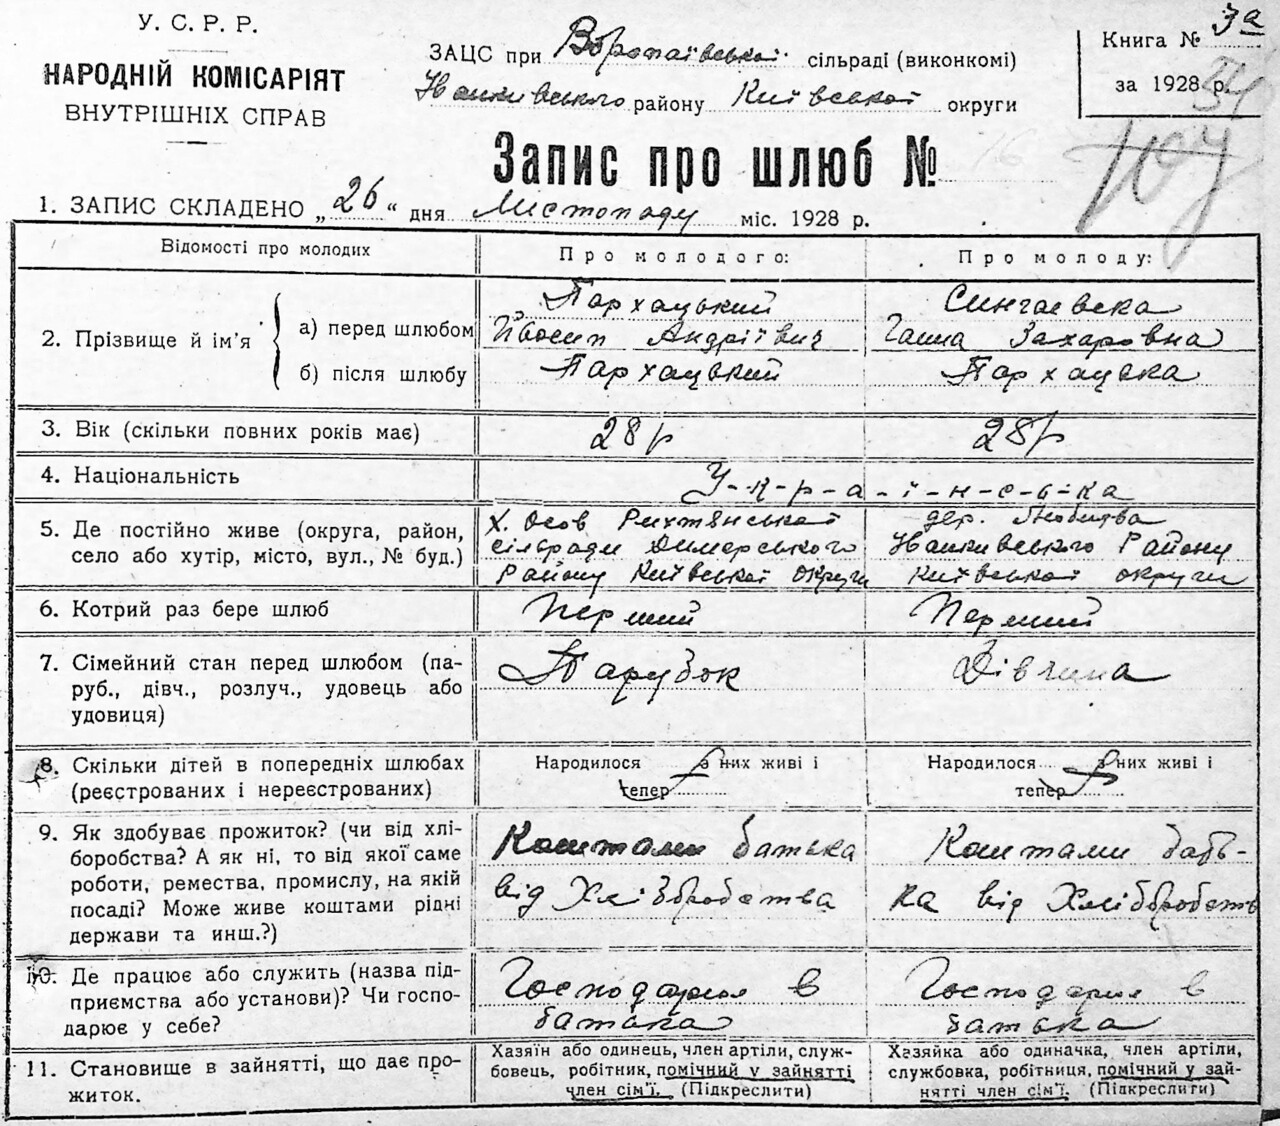 У. С. Р. Р.
НАРОДНІЙ КОМІСАРІЯТ
ВНУТРІШНІХ СПРАВ
ЗАЦС при Воропаївській сільраді (виконкомі)
району Київської округи
Книга № 3а
за 1928 р.
54
Запис про шлюб №
16
104
1. ЗАПИС СКЛАДЕНО „26“ дня Листопаду міс. 1928 р.
Відомості про молодих
Про молодого:
Про молоду:
2. Прізвище й ім'я
а) перед шлюбом
б) після шлюбу
Пархацький
Йвосип Андріївич
Пархацький
Сингаевска
Ганна Захаровна
Пархацька
3. Вік (скільки повних років має)
28р
28р
4. Національність
У-к-р-а-ї-н-с-ь-ка
5. Де постійно живе (округа, район,
село або хутір, місто, вул., № буд.)
х. Осов Рихтянської
сільради Димерського
Району Київської округи
дер. Любидва
Району
Київської округи
6. Котрий раз бере шлюб
Перший
Перший
7. Сімейний стан перед шлюбом (па-
руб., дівч., розлуч., удовець або
удовиця)
Парубок
Дівчина
8. Скільки дітей в попередніх шлюбах
(реєстрованих і нереєстрованих)
Народилося з них живі і
тепер
Народилося з них живі і
тепер
9. Як здобуває прожиток? (чи від хлі-
боробства? А як ні, то від якої саме
роботи, ремества, промислу, на якій
посаді? Може живе коштами рідні
держави та инш.?)
Коштами батька
від Хлібборобства
Коштами бать-
ка від Хлібборобств
10. Де працює або служить (назва під-
приємства або установи)? Чи госпо-
дарює у себе?
Господарює в
батька
Господарює в
батька
11. Становище в зайнятті, що дає про-
житок.
Хазяїн або одинець, член артіли, служ-
бовець, робітник, помічний у зайнятті
член сім'ї. (Підкреслити)
Хазяйка або одиначка, член артіли,
службовка, робітниця, помічний у зай-
нятті член сім'ї. (Підкреслити)